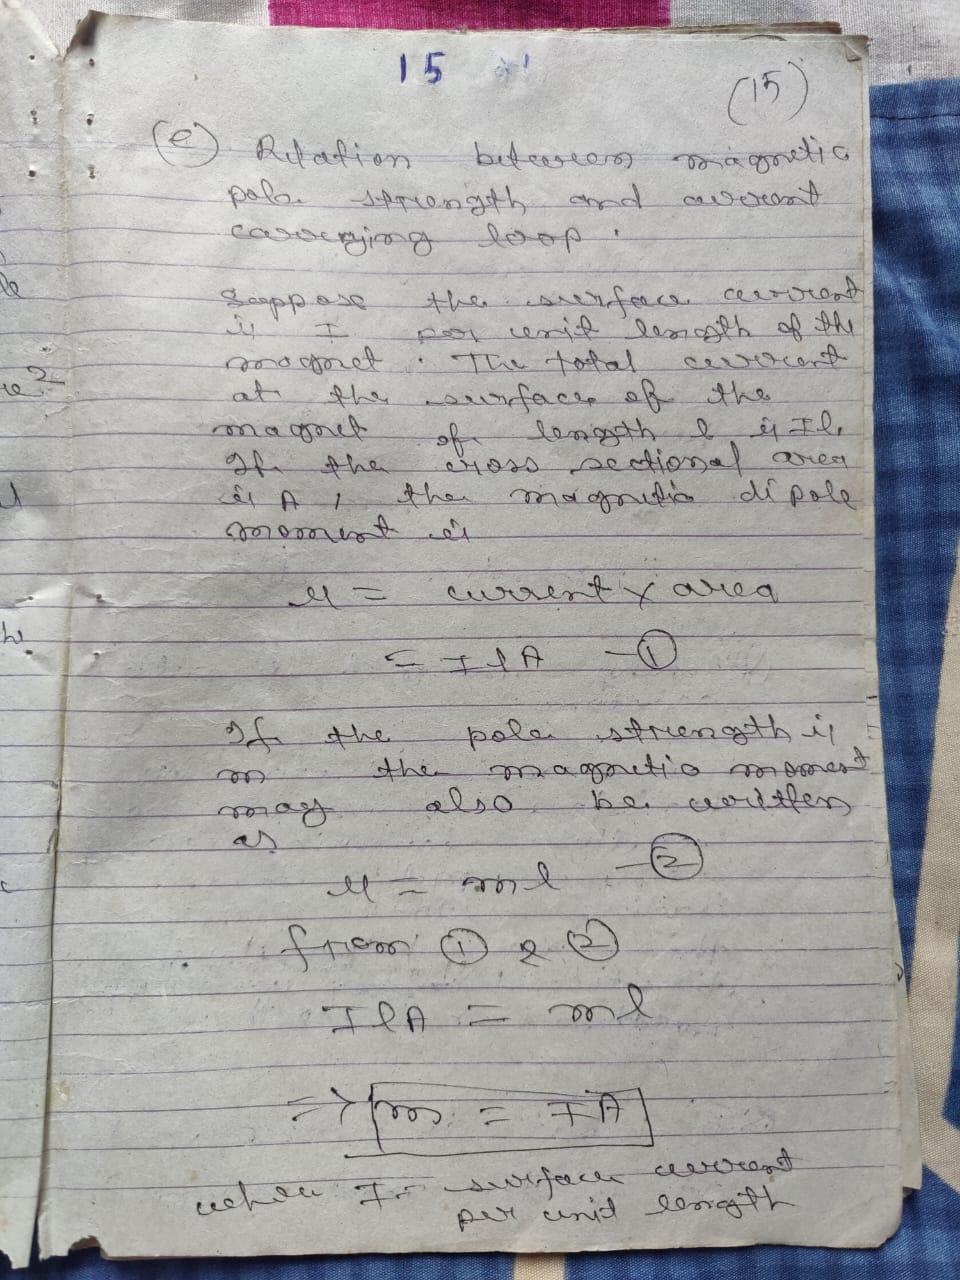 15
(15)
(e) Relation between magnetic
pole strength and current
carrying loop.
Suppose the surface current
is I per unit length of the
magnet. The total current
at the surface of the
magnet of length l is Il.
If the cross sectional area
is A, the magnetic dipole
moment is
M = current x area
= I l A —①
If the pole strength is
m the magnetic moment
may also be written
as
M = ml —②
from ① & ②
I l A = ml
=> m = IA
where I = surface current
per unit length